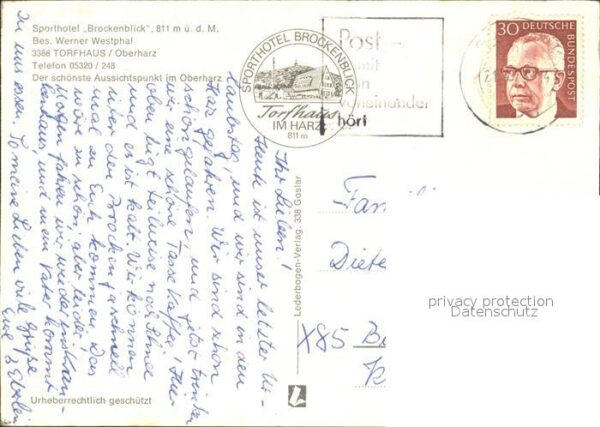 Sporthotel „Brockenblick", 811 m ü. d. M.
Bes. Werner Westphal
3388 TORFHAUS / Oberharz
Telefon 05320 / 248
Der schönste Aussichtspunkt im Oberharz
SPORTHOTEL BROCKENBLICK
Torfhaus
IM HARZ
811 m
Post-
mit
man
voneinander
hört
30 DEUTSCHE
BUNDESPOST
Ihr Lieben!
Heute ist unser letzter Ur-
laubstag, und wir sind in den
Harz gefahren. Wir sind schon
schön gelaufen, und jetzt trinken
wir eine schöne Tasse Kaffee! Hier
oben liegt teilweise noch Schnee
und es ist kalt. Wir können
über den Brocken schnell
mal zu Euch kommen. Das
wäre zu schön, aber leider.
Morgen fahren wir wieder
und mein Vater kommt
zu uns
meine Lieben viele Grüße
Eure
Lederbogen-Verlag, 338 Goslar
Fam
Diete
X85 B
privacy protection
Datenschutz
Urheberrechtlich geschützt